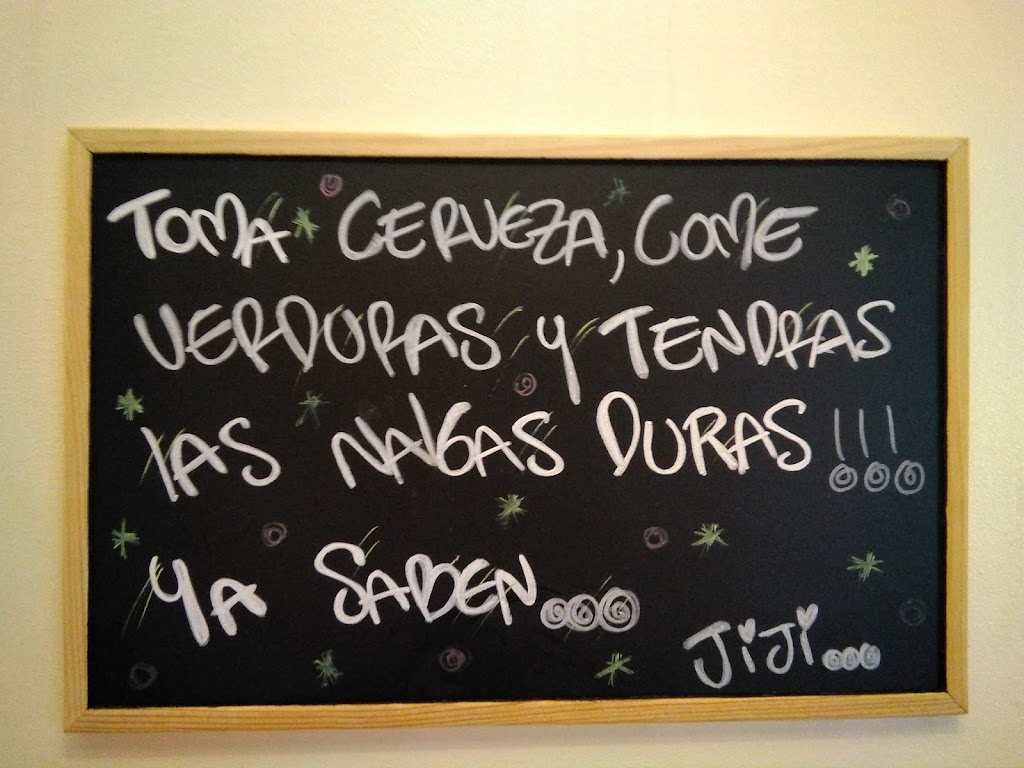 TOMA CERVEZA, COME
VERDURAS Y TENDRAS
lAS NAlGAS DURAS !!!
YA SABEN...
JiJi...